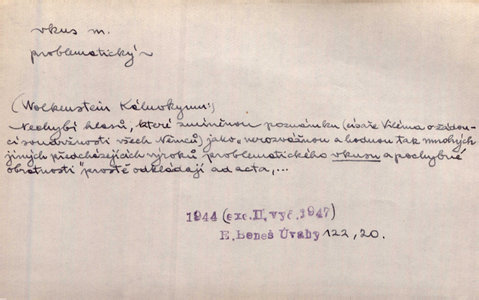 vkus m.
problematický
(Wolkenstein Kálnokymu:)
Nechybí hlasů, které zmíněnou poznámku (císaře Viléma o žádou-
cí souvěrnosti všech Němců) jako, nerozvážnou a hodnou tak mnohých
jiných předcházejících výroků problematického vkusu a pochybné
obratnosti prostě odkládají ad acta,...
1944 (exc. II. vyd. 1947)
E. Beneš Úvahy 122, 20.